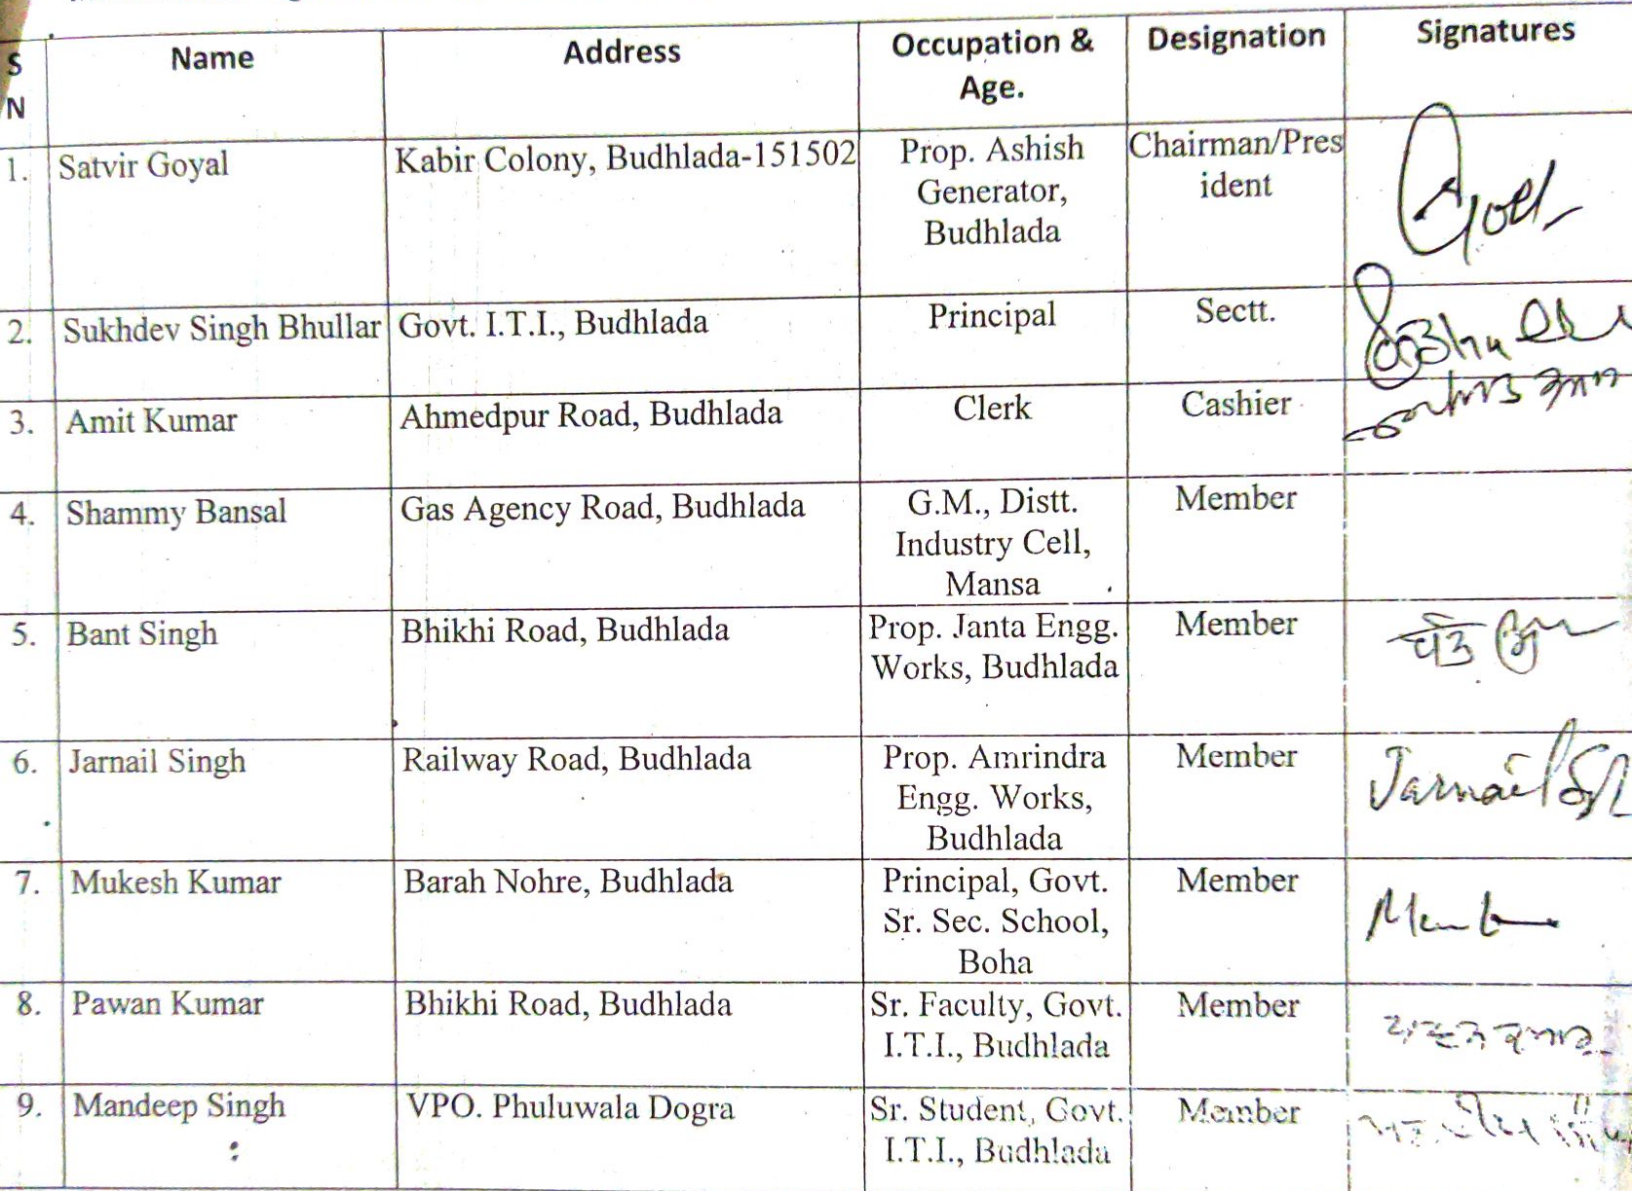 S N Name Address Occupation & Age. Designation Signatures
1. Satvir Goyal Kabir Colony, Budhlada-151502 Prop. Ashish Chairman/Pres
Generator, ident
Budhlada
2. Sukhdev Singh Bhullar Govt. I.T.I., Budhlada Principal Sectt.
3. Amit Kumar Ahmedpur Road, Budhlada Clerk Cashier
4. Shammy Bansal Gas Agency Road, Budhlada G.M., Distt. Member
Industry Cell,
Mansa
5. Bant Singh Bhikhi Road, Budhlada Prop. Janta Engg. Member
Works, Budhlada
6. Jarnail Singh Railway Road, Budhlada Prop. Amrindra Member Jarnail
Engg. Works,
Budhlada
7. Mukesh Kumar Barah Nohre, Budhlada Principal, Govt. Member
Sr. Sec. School,
Boha
8. Pawan Kumar Bhikhi Road, Budhlada Sr. Faculty, Govt. Member
I.T.I., Budhlada
9. Mandeep Singh VPO. Phuluwala Dogra Sr. Student, Govt. Member
I.T.I., Budhlada